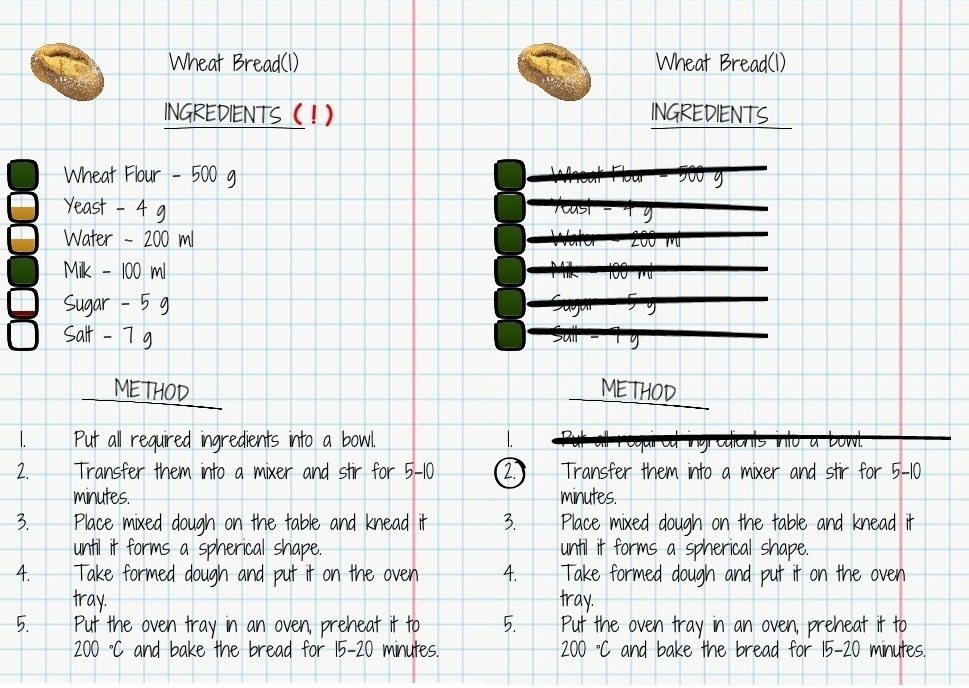 Wheat Bread(1)
INGREDIENTS (!)
Wheat Flour - 500 g
Yeast - 4 g
Water - 200 ml
Milk - 100 ml
Sugar - 5 g
Salt - 7 g
METHOD
1. Put all required ingredients into a bowl.
2. Transfer them into a mixer and stir for 5-10
minutes.
3. Place mixed dough on the table and knead it
until it forms a spherical shape.
4. Take formed dough and put it on the oven
tray.
5. Put the oven tray in an oven, preheat it to
200 °C and bake the bread for 15-20 minutes.
Wheat Bread(1)
INGREDIENTS
Wheat Flour - 500 g
Yeast - 4 g
Water - 200 ml
Milk - 100 ml
Sugar - 5 g
Salt - 7 g
METHOD
1. Put all required ingredients into a bowl.
2. Transfer them into a mixer and stir for 5-10
minutes.
3. Place mixed dough on the table and knead it
until it forms a spherical shape.
4. Take formed dough and put it on the oven
tray.
5. Put the oven tray in an oven, preheat it to
200 °C and bake the bread for 15-20 minutes.